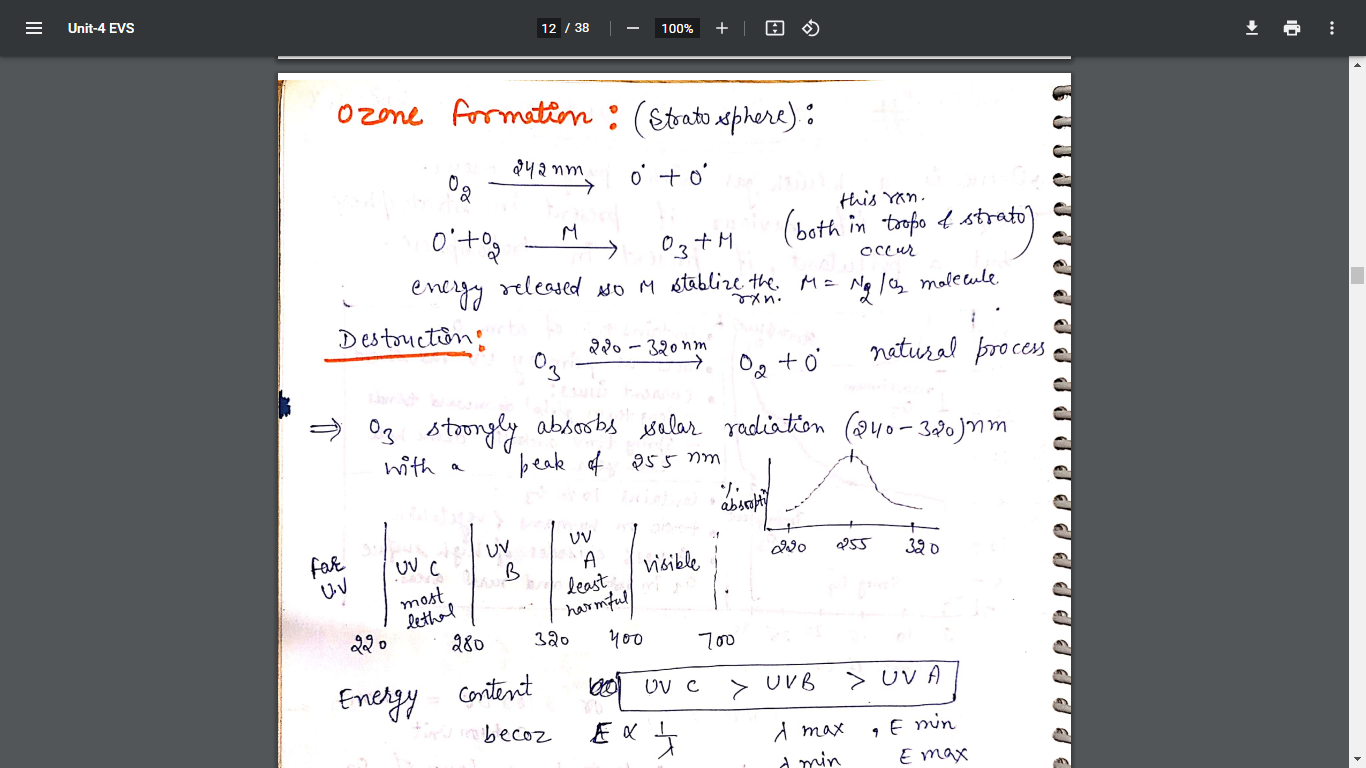 Unit-4 EVS
12 / 38
100%
Ozone formation : (Stratosphere) :
O2 —242 nm→ O˙ + O˙
this rxn.
O˙ + O2 —M→ O3 + M (both in tropo & strato)
occur
energy released so M stablize the rxn. M = N2/O2 molecule.
Destruction: O3 —220 – 320 nm→ O2 + O˙ natural process
⇒ O3 strongly absorbs solar radiation (240 – 320) nm
with a peak of 255 nm
% absorpti
220 255 320
far U.V
UV C most lethal
UV B
UV A least harmful
visible
220 280 320 400 700
Energy content UV C > UVB > UV A
becoz E ∝ 1/λ λ max , E min
λ min E max